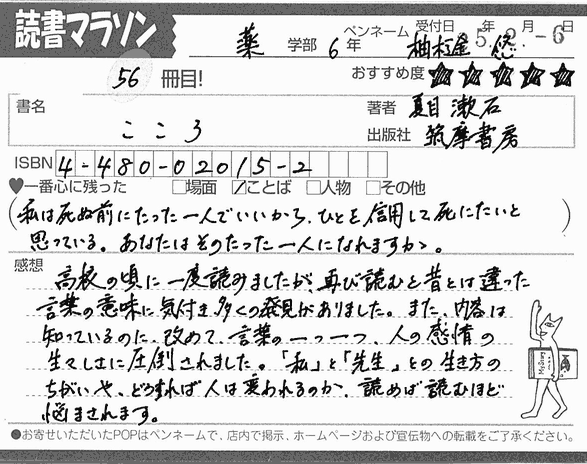 読書マラソン
薬 学部 6年 ペンネーム 柚木屋 悠 受付日 5年 2月 -6日
56 冊目! おすすめ度 ★★★★★
書名 こころ
著者 夏目 漱石
出版社 筑摩書房
ISBN 4-480-02015-2
♥一番心に残った □場面 ☑ことば □人物 □その他
(私は死ぬ前にたった一人でいいから、ひとを信用して死にたいと
思っている。あなたはそのたった一人になれますか。)
感想 高校の頃に一度読みましたが、再び読むと昔とは違った
言葉の意味に気付き多くの発見がありました。また、内容は
知っているのに、改めて、言葉の一つ一つ、人の感情の
生々しさに圧倒されました。「私」と「先生」との生き方の
ちがいや、どうすれば人は変われるのか、読めば読むほど
悩まされます。
●お寄せいただいたPOPはペンネームで、店内で掲示、ホームページおよび宣伝物への転載をご了承ください。